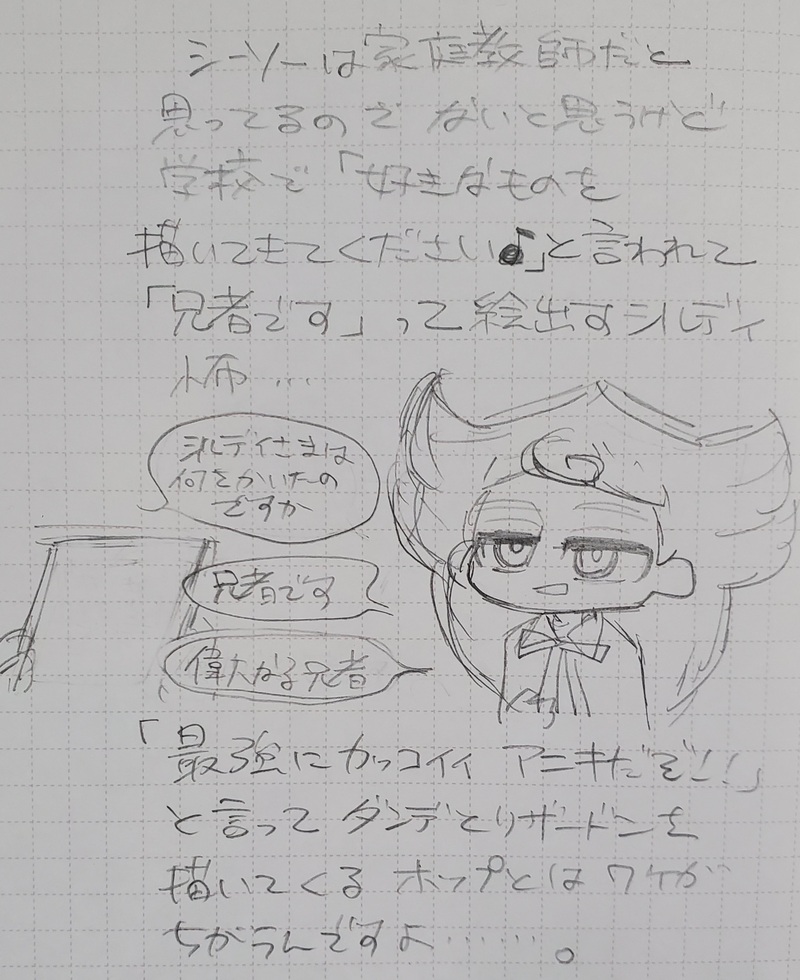 シーソーは家庭教師だと
思ってるので ないと思うけど
学校で「好きなものを
描いてきてください♪」と言われて
「兄者です」って絵出すシルディ
怖…
シルディさまは
何をかいたの
ですか
兄者です
偉大なる兄者
「最強にカッコイイ アニキだぞ!!」
と言って ダンデとリザードンを
描いてくる ホップとは ワケが
ちがうんですよ……。